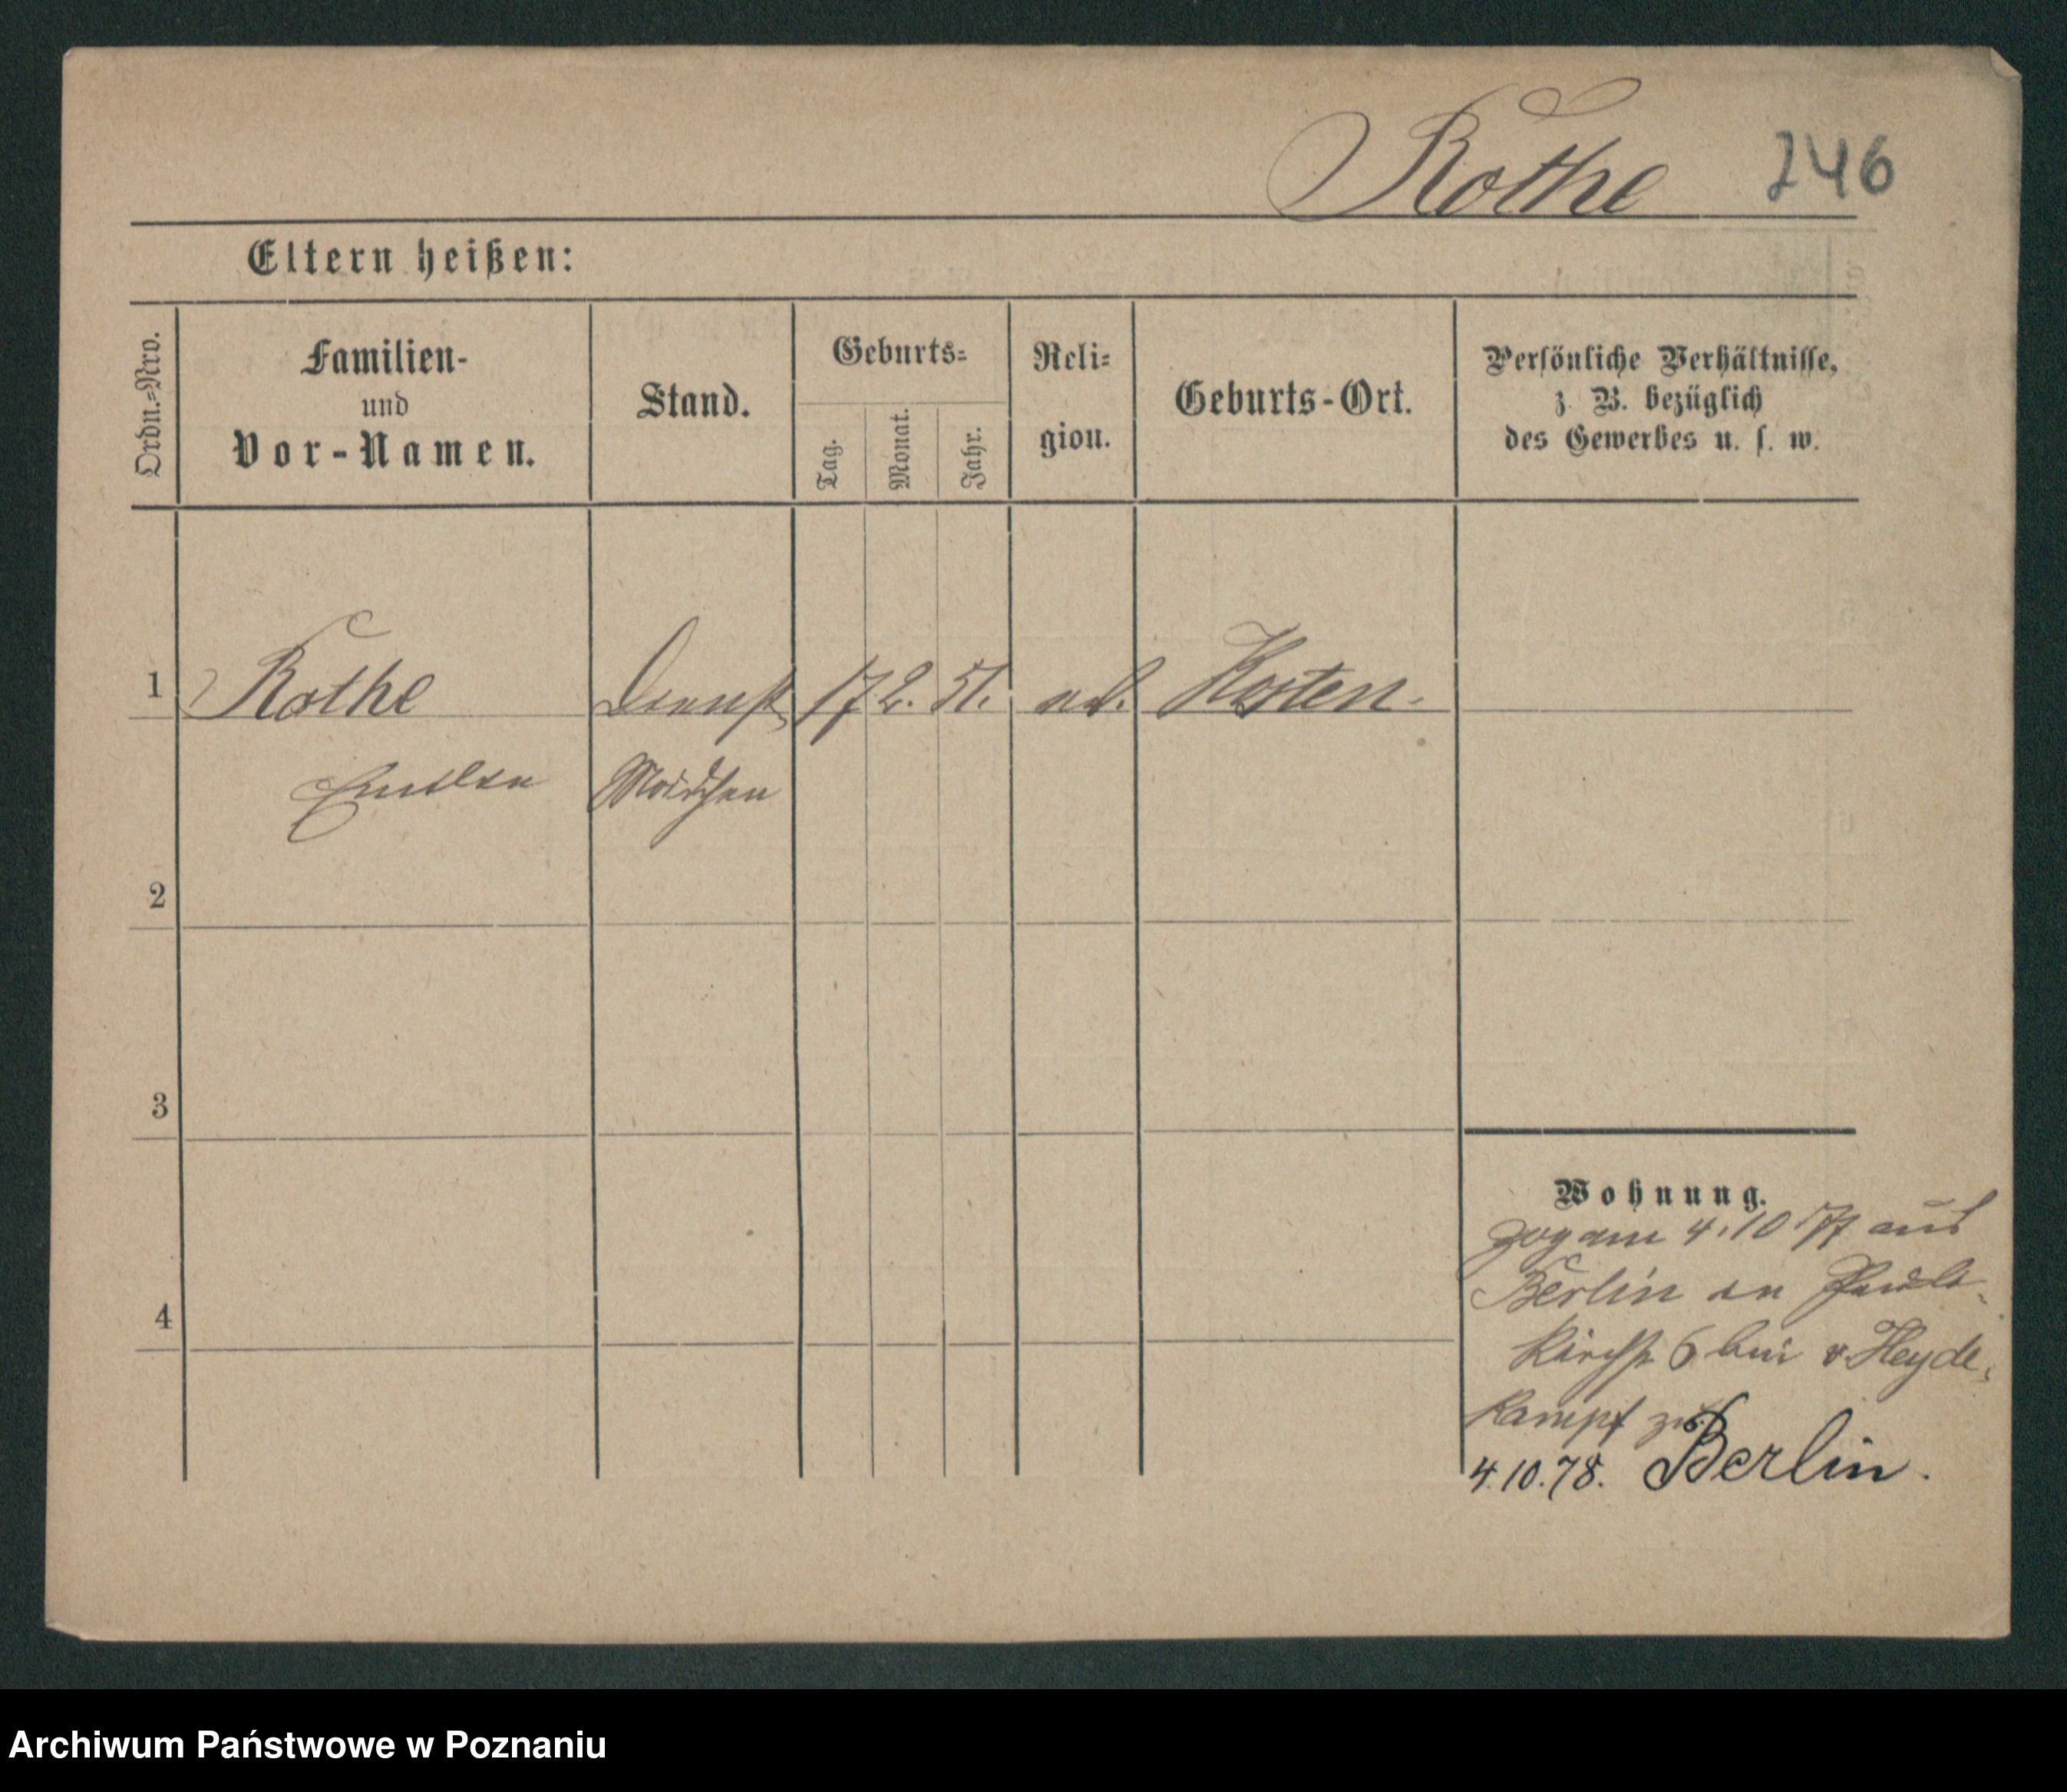 Rothe 246
Eltern heißen:
Ordn.=Nro.
Familien-
und
Vor-Namen.
Stand.
Geburts=
Tag.
Monat.
Jahr.
Reli=
gion.
Geburts-Ort.
Persönliche Verhältnisse,
z. B. bezüglich
des Gewerbes u. s. w.
1 Rothe Dienst 17 2. 51. Kosten.
Mädchen
2
3
4
Wohnung.
zog am 4.10 77 aus
Berlin Pauli-
kirchst. 6 bei v. Heyde-
kampf zu
4.10.78. Berlin.
Archiwum Państwowe w Poznaniu